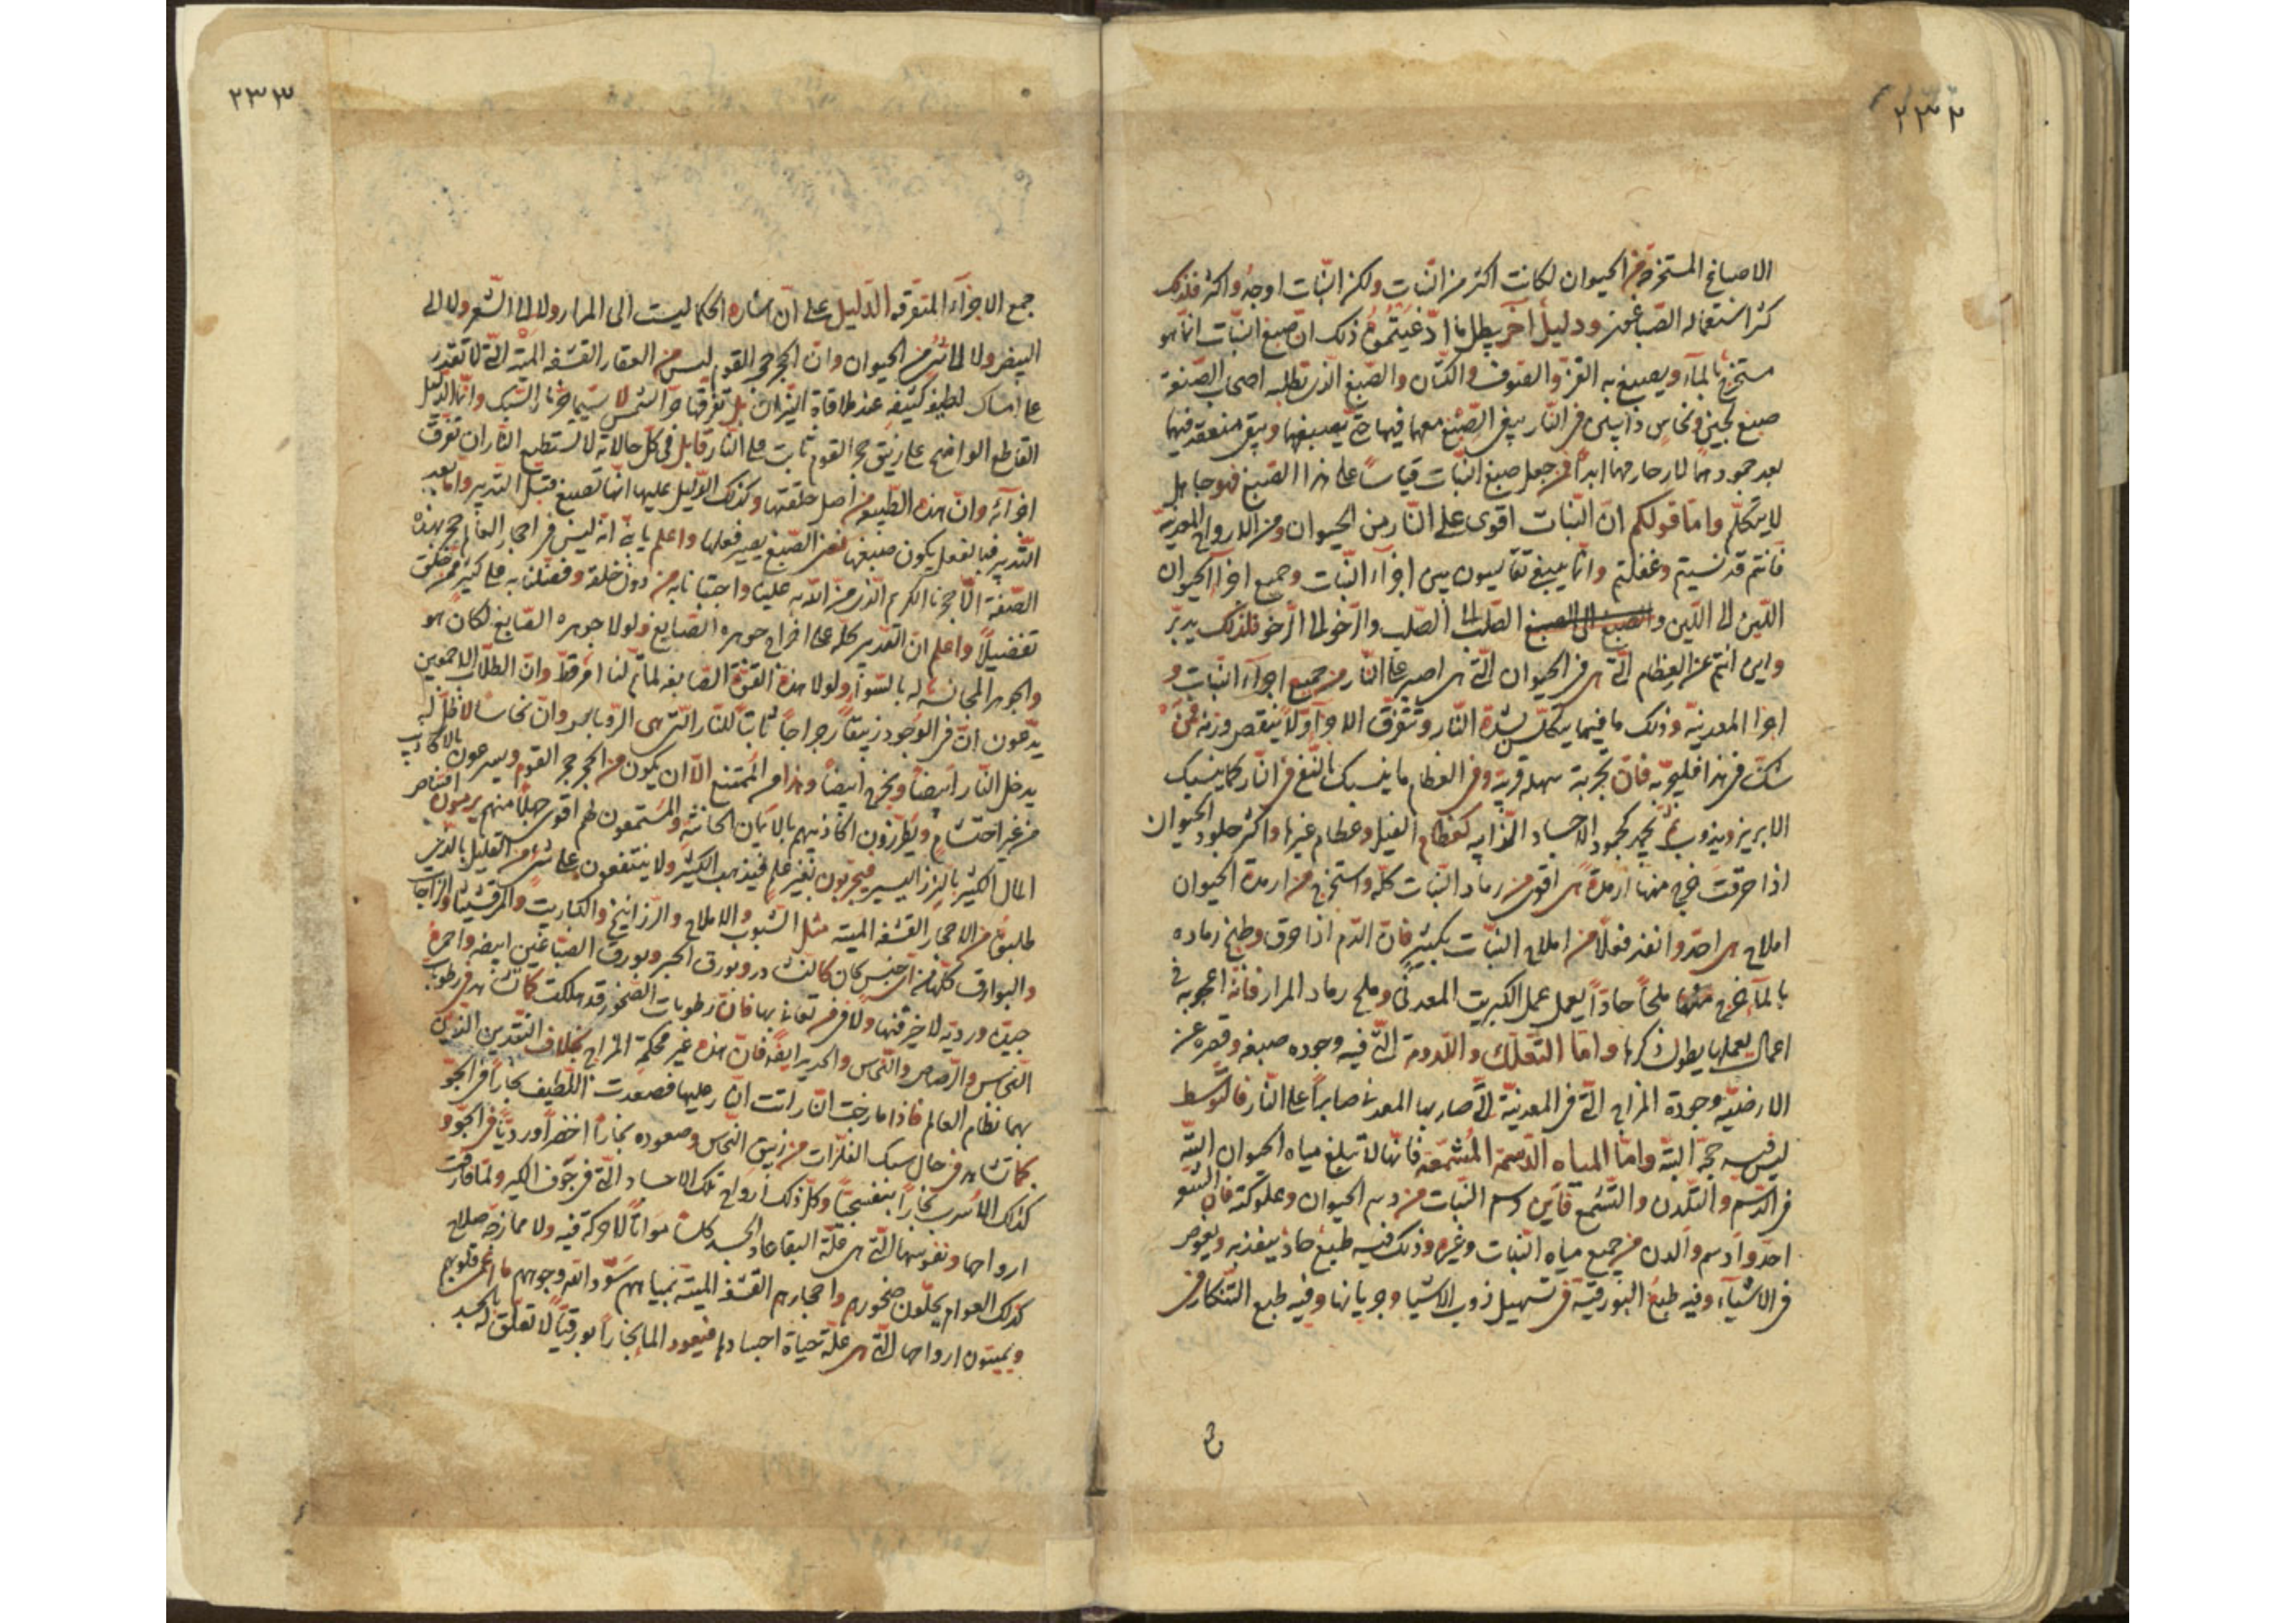 ٢٣٢
الاصباغ المستخرجة من الحيوان لكانت اكثر من النّبات ولكن النّبات اوجد واكثر فلذلك
كثر استعماله الصّباغون ودليلٌ آخر يبطل ما ادّعيتموُ ذلك انّ صبغ النّبات انّما هو
مستخرج بالمآء ويصبغ به القزّ والصّوف والكتّان والصّبغ الّذى تطلبه اصحاب الصّنعة
صبغ لجين ونحاس ذايبين فى النّار يبقى الصّبغ معهما فيها حتّى يصبغها ويبقى منعقد فيهما
بعد جمودهما لا يفارقهما ابداً فمن جعل صبغ النّبات قياساً على هذا الصّبغ فهو جاهل
لا يتكلّم وامّا قولكم انّ النّبات اقوى على النّار من الحيوان ومن الارواح المعدنيّة
فانتم قد نسيتم وغفلتم وانّما ينبغى تقايسون بين اجزآء النّبات وجميع اجزآء الحيوان
اللّين الى اللّين و الصّلب الى الصّلب والرّخو الى الرّخو فلذلك يدبّر
واين انتم عن العظام الّتى هى فى الحيوان الّتى هى اصبر على النّار من جميع اجزآء النّبات و
اجزا المعدنيّة وذلك ما فيهما يتكلّس بشدّة النّار وتتفرّق الاجزآء ولا ينقص وزنه فمن
شكّ فى هذا فليجرّبه فانّ تجربة سهلة قريبة وفى العظام ما ينسبك بالنّفخ فى النّار كما ينسبك
الابريز ويذوب ثمّ يجمد كجمود الاجساد الذّايبه كعظام الفيل وعظام غيرها واكثر جلود الحيوان
اذا حرقت خرج منها ارمدة هى اقوى من رماد النّبات كلّه واستخرج من ارمدة الحيوان
املاح هى احدّ وانفذ فعلاً من املاح النّبات بكثير فانّ الدّم اذا حرق وطبخ رماده
بالمآء خرج منها ملحاً حادّاً يعمل عمل الكبريت المعدنى وملح رماد المرار فانّه اعجوبه فى
اعمال يعملها يطول ذكرها وامّا التعلّك واللّدومة الّتى فيه وجوده صبغه وقصره عن
الارضيّه وجودة المزاج الّتى فى المعدنيّة الّتى صار بها المعدنى صابراً على النّار فالتوسّط
ليس فيه حجّة البتّه وامّا المياه الدّسمة المُشمّعه فانّها لا تبلغ مياه الحيوان البتّه
فى الدّسم والتّلدّن والتّشمّع فاين دسم النّبات من دسم الحيوان وعلوكته فانّ الشّعر
احدّ وادسم والدن من جميع مياه النّبات وغيره وذلك فيه طبعٌ حادٌ ينفذ به ويغوص
فى الاشيآء وفيه طبعُ البّورقيّة فى تسهيل ذوب الاشيا وجريانها وفيه طبع التّنكار فى
٢٣٣
جمع الاجزآء المتفرّقه الدّليل على انّ اشارة الحكما ليست الى المرار ولا الى الشّعر ولا الى
البيض ولا الى شئ من الحيوان وانّ الحجر حجر القوم ليس من العقار القشفه الميّته الّتى لا تقدر
على امساك لطيف كثيفه عند ملاقاة النّيران بل تفرّقها حرّ الشّمس لا سيّما حرّ نار السّبك وانّما الدّليل
القاطع الواضح على زيبق حجر القوم ثابت على النّار قابل فى كلّ حالاته لا تستطيع النّار ان تفرّق
اجزآئه وانّ هذه الطّبيعة من اصل خلقتها وكذلك الدّليل عليها انّها تصبغ قبل التّدبير وامّا بعد
التّدبير فبالفعل يكون صبغها نفس الصّبغ يصير فعلها واعلم يا بنى انّه ليس فى احجار العالم حجر بهذه
الصّفة الّا حجرنا الكريم الّذى منّ اللّه به علينا واجتبانا به من دون خلقه وفضّلنا به على كثير ممّن خلق
تفضيلاً واعلم انّ التّدبير كلّه على اخراج جوهره الصّابغ ولولا جوهره الصّابغ لكان هو
والجوهر المجانس له بالسّوآء ولولا هذه القوّة الصّابغه لما تمّ لنا امر قطّ وانّ الطّلّاب اللاحمويين
يدّعون انّ فى الوجود زيبقاً رجراجاً ثابتاً للنّار الّتى هى الرّوباص وانّ نحاساً لا ظلّ له
يدخل النّار ابيضاً ويخرج ابيضاً وهذا من الممتنع الّا ان يكون من الحجر حجر القوم ويسرعون بالاكاذيب
من غير احتشام ويطرزون اكاذيبهم بالايمان الحانثة والمستمعون لهم اقوى جهلاً منهم يرمون اقتناص
المال الكثير بالنّزر اليسير فيجرّبون بغير علم فيذهب الكثير ولا ينتفعون على شئ من القليل بالّذى
طلبوه من الاحجار القشفه الميّته مثل الشّبوب والاملاح والزّرانيخ والكباريت والمرقشيثا والزّاجات
والبوارق كلّها من اىّ جنس كان كالنشادر وبورق الخبز وبورق الصبّاغين ابيضه واحمره
جيّده ورديّه لا خير فيها ولا فى من تعانى بها فانّ رطوبات الصّخور قد هلكت كما تشاهد فى رطوبات
النّحاس والرّصاص والنّحاس والحديد ايضاً فانّ هذه غير محكمة المزاج بخلاف النّقدين الّذين
بهما نظام العالم فاذا مازجت النّار اتت النّار عليها فصعدت اللّطيف بخاراً فى الجوّ
كما تشاهد فى حال سبك الفلزّات من زيبق النّحاس وصعوده بخاراً اخضراً ورديّاً فى الجوّ و
كذلك الاسرب بخاراً بنفسجيّاً وكلّ ذلك ارواح تلك الاجساد الّتى فى جوف الكير ولمّا فارقت
ارواحها ونفوسها الّتى هى علّة البقا عاد الجسد كلساً مواتاً لا حركة فيه ولا ممازجة صلاح
كذلك العوام يحلّون صخورهم واحجارهم القشفه الميّته بمياههم سوّد اللّه وجوههم ما اعمى قلوبهم
ويميتون ارواحها الّتى هى علّة حياة اجسادها فيعود الما بخاراً بورقيّاً لا تعلّق له بالجسد